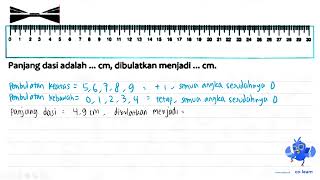 0 1 2 3 4 5 6 7 8 9 10 11 12 13 14 15 16 17 18 19 20 21 22 23 24 25 26 27 28 29 30
Panjang dasi adalah ... cm, dibulatkan menjadi ... cm.
Pembulatan keatas = 5, 6, 7, 8, 9 = +1, semua angka sesudahnya 0
Pembulatan kebawah = 0, 1, 2, 3, 4 = tetap, semua angka sesudahnya 0
panjang dasi = 4.9 cm, dibulatkan menjadi =
co learn